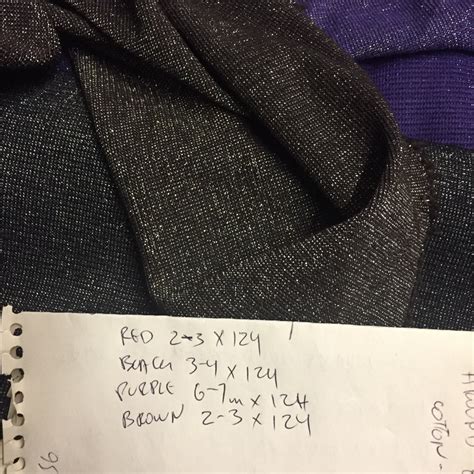 RED 2-3 X 124
BLACK 3-4 X 124
PURPLE 6-7m X 124
BROWN 2-3 X 124
COTTON -
95